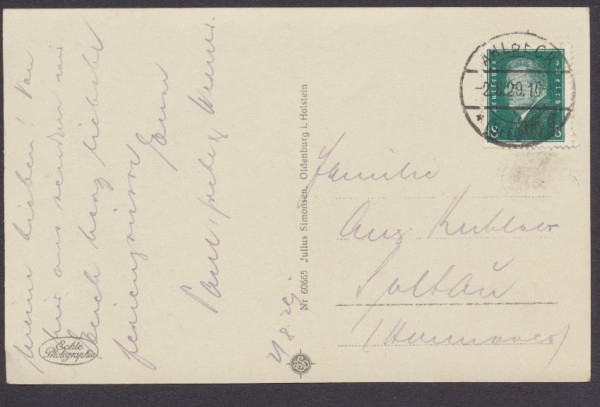 Meine Lieben! Von
hier aus senden wir
Euch herzliche
Feriengrüsse
Eure
Paul, Frieda & Werner.
2/8.29.
Echte
Photographie
Nr 60665 Julius Simonsen, Oldenburg i. Holstein
AHLBECK
29.10
DEUTSCHES REICH
8 8
Familie
Aug.
Soltau
(Hannover)